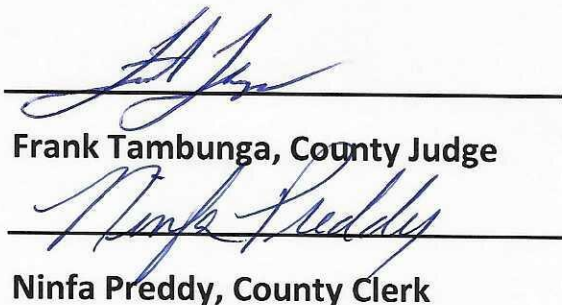 Frank Tambunga, County Judge
Ninfa Preddy
Ninfa Preddy, County Clerk